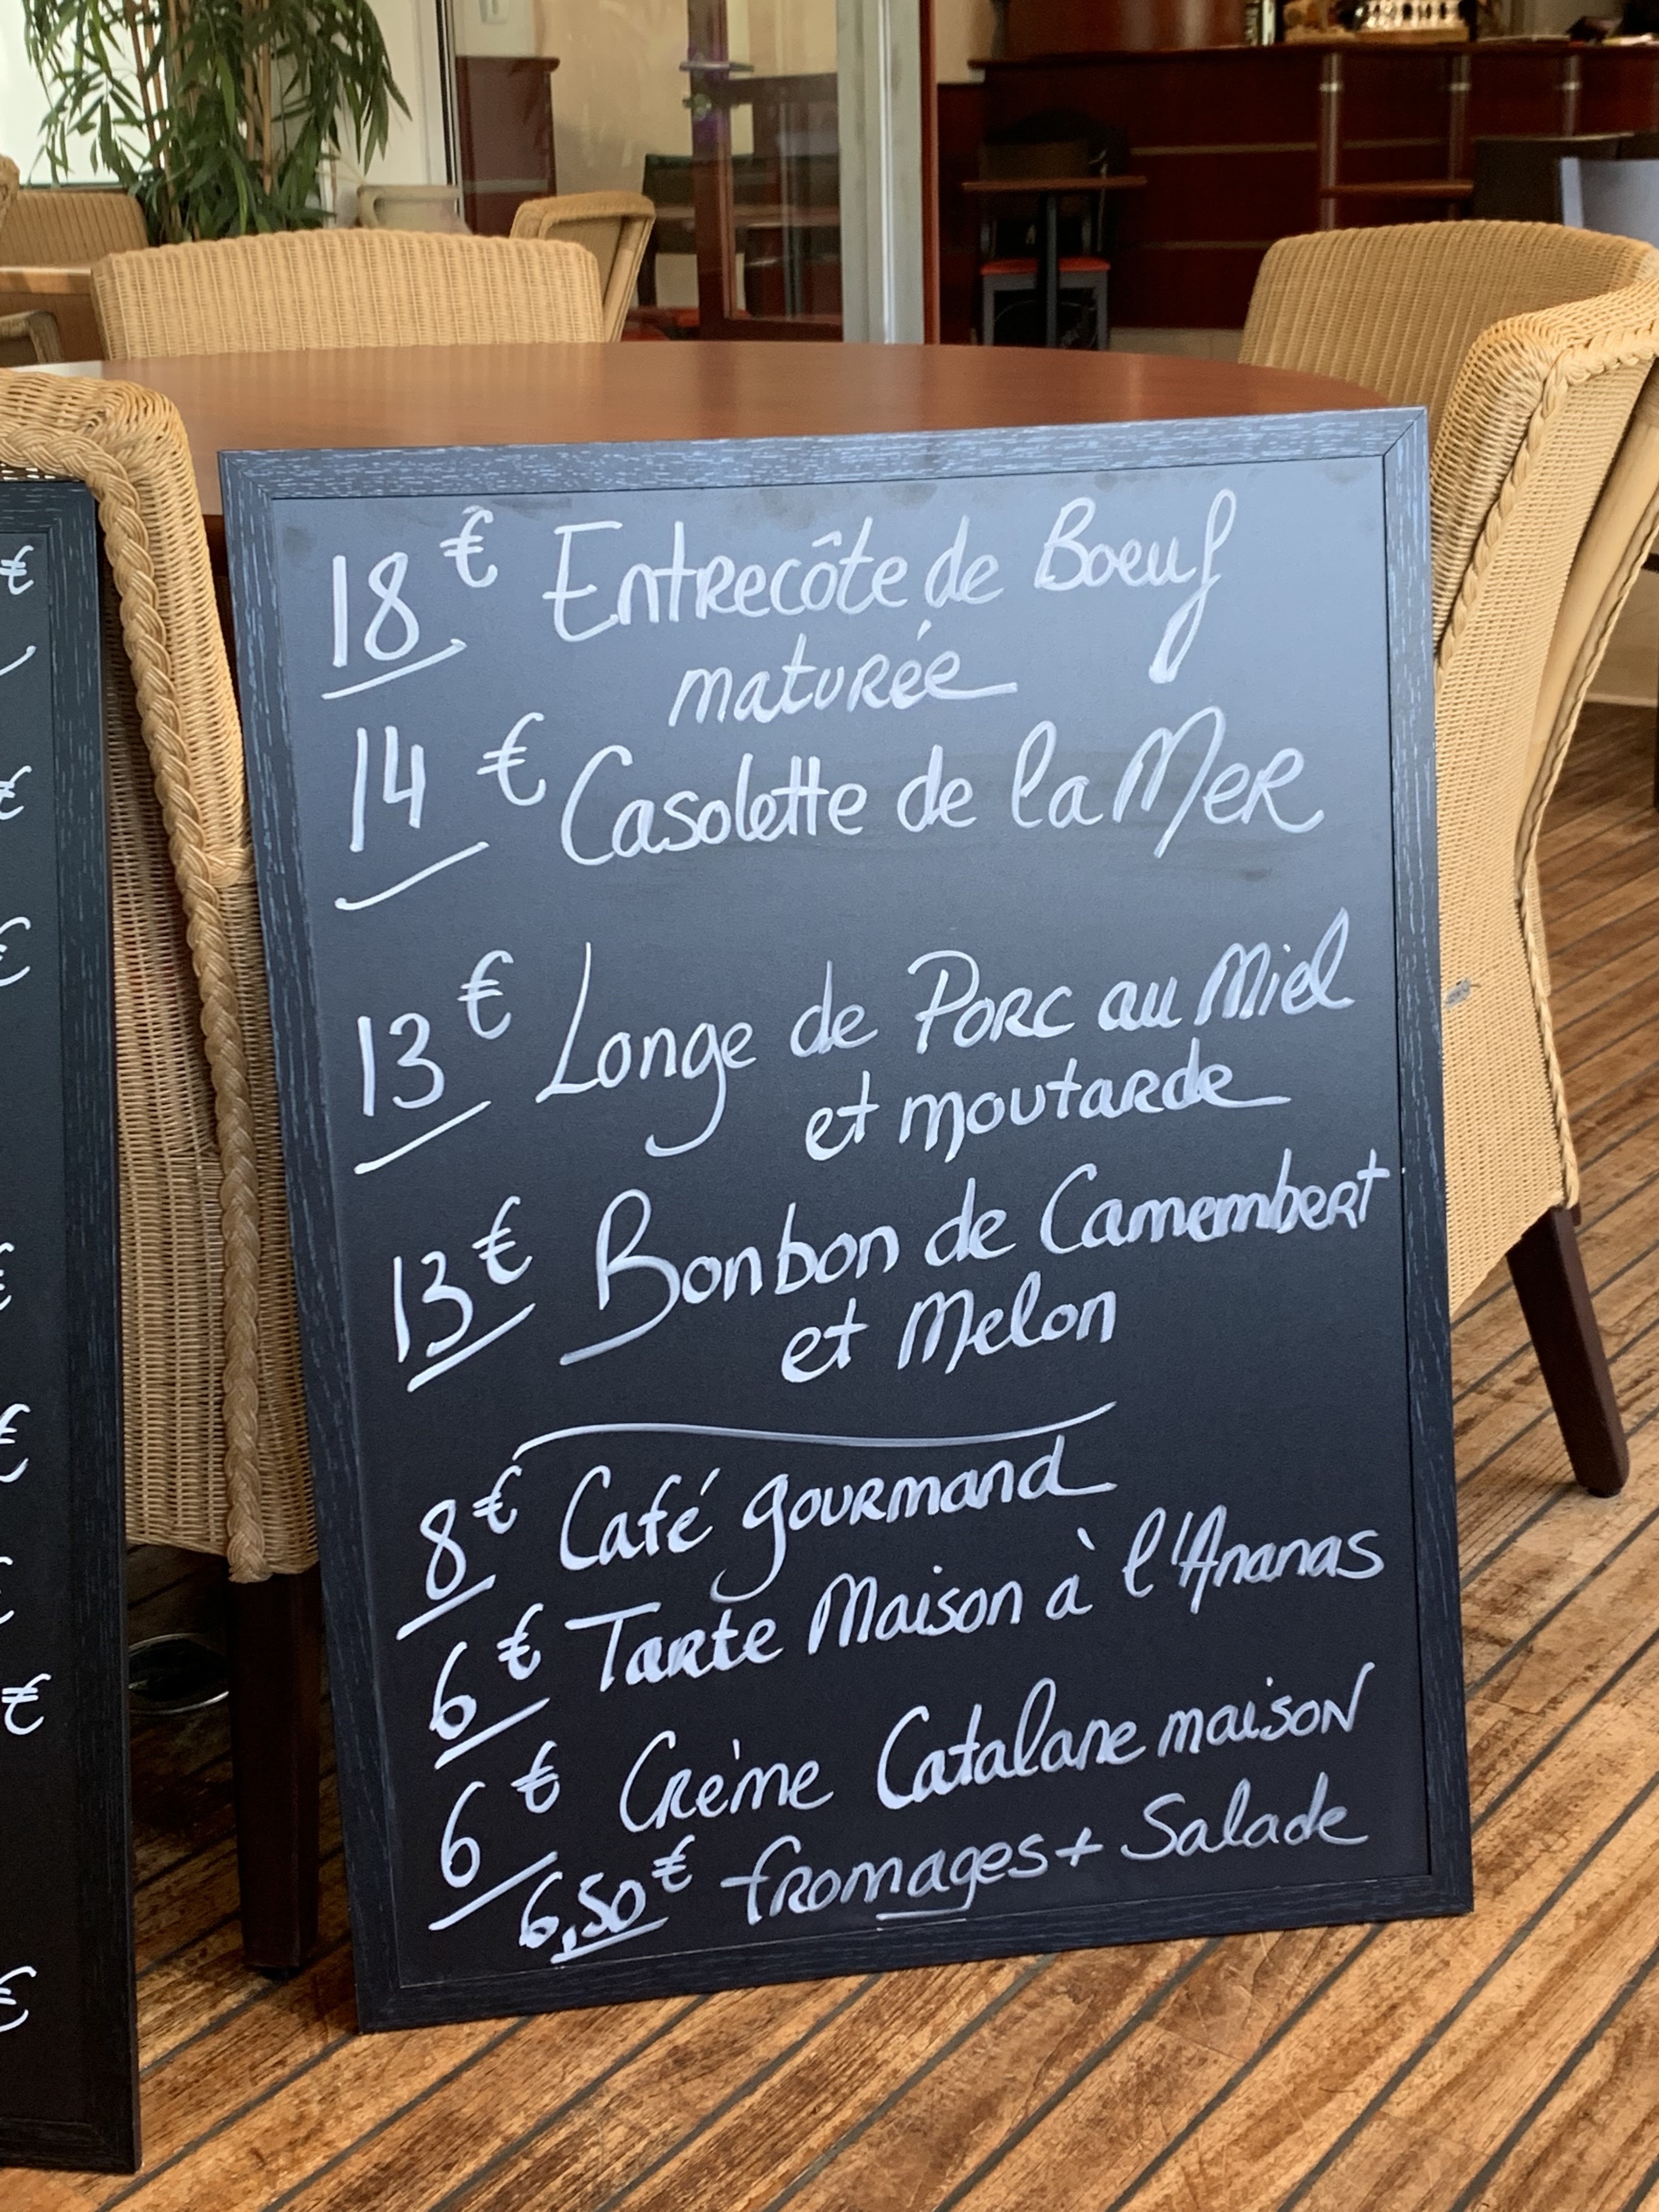 18€ Entrecôte de Boeuf
maturée
14€ Casolette de la Mer
13€ Longe de Porc au Miel
et moutarde
13€ Bonbon de Camembert
et Melon
8€ Café gourmand
6€ Tarte Maison à l'Ananas
6€ Crème Catalane maison
6,50€ fromages + Salade
€
€
€
€
€
€
€